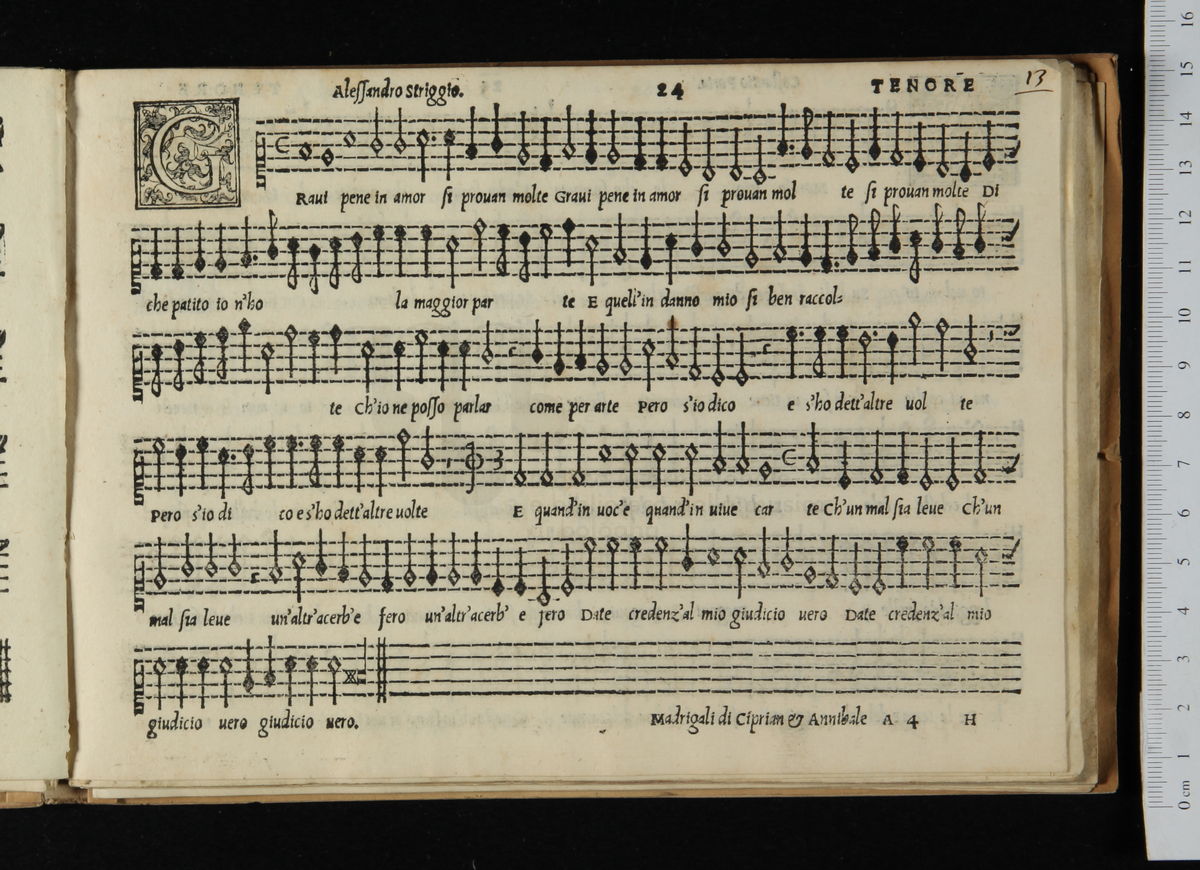 Alessandro Striggio. 24 TENORE 13
GRaui pene in amor si prouan molte Graui pene in amor si prouan mol te si prouan molte Di
che patito io n'ho la maggior par te E quell'in danno mio si ben raccol=
te Ch'io ne posso parlar come per arte Pero s'io dico e s'ho dett'altre uol te
Pero s'io di co e s'ho dett'altre uolte E quand'in uoc'e quand'in uiue car te Ch'un mal sia leue Ch'un
mal sia leue un'altr'acerb'e fero un'altr'acerb' e fero Date credenz'al mio giudicio uero Date credenz'al mio
giudicio uero giudicio uero.
Madrigali di Ciprian & Annibale A 4 H
0 cm 1 2 3 4 5 6 7 8 9 10 11 12 13 14 15 16